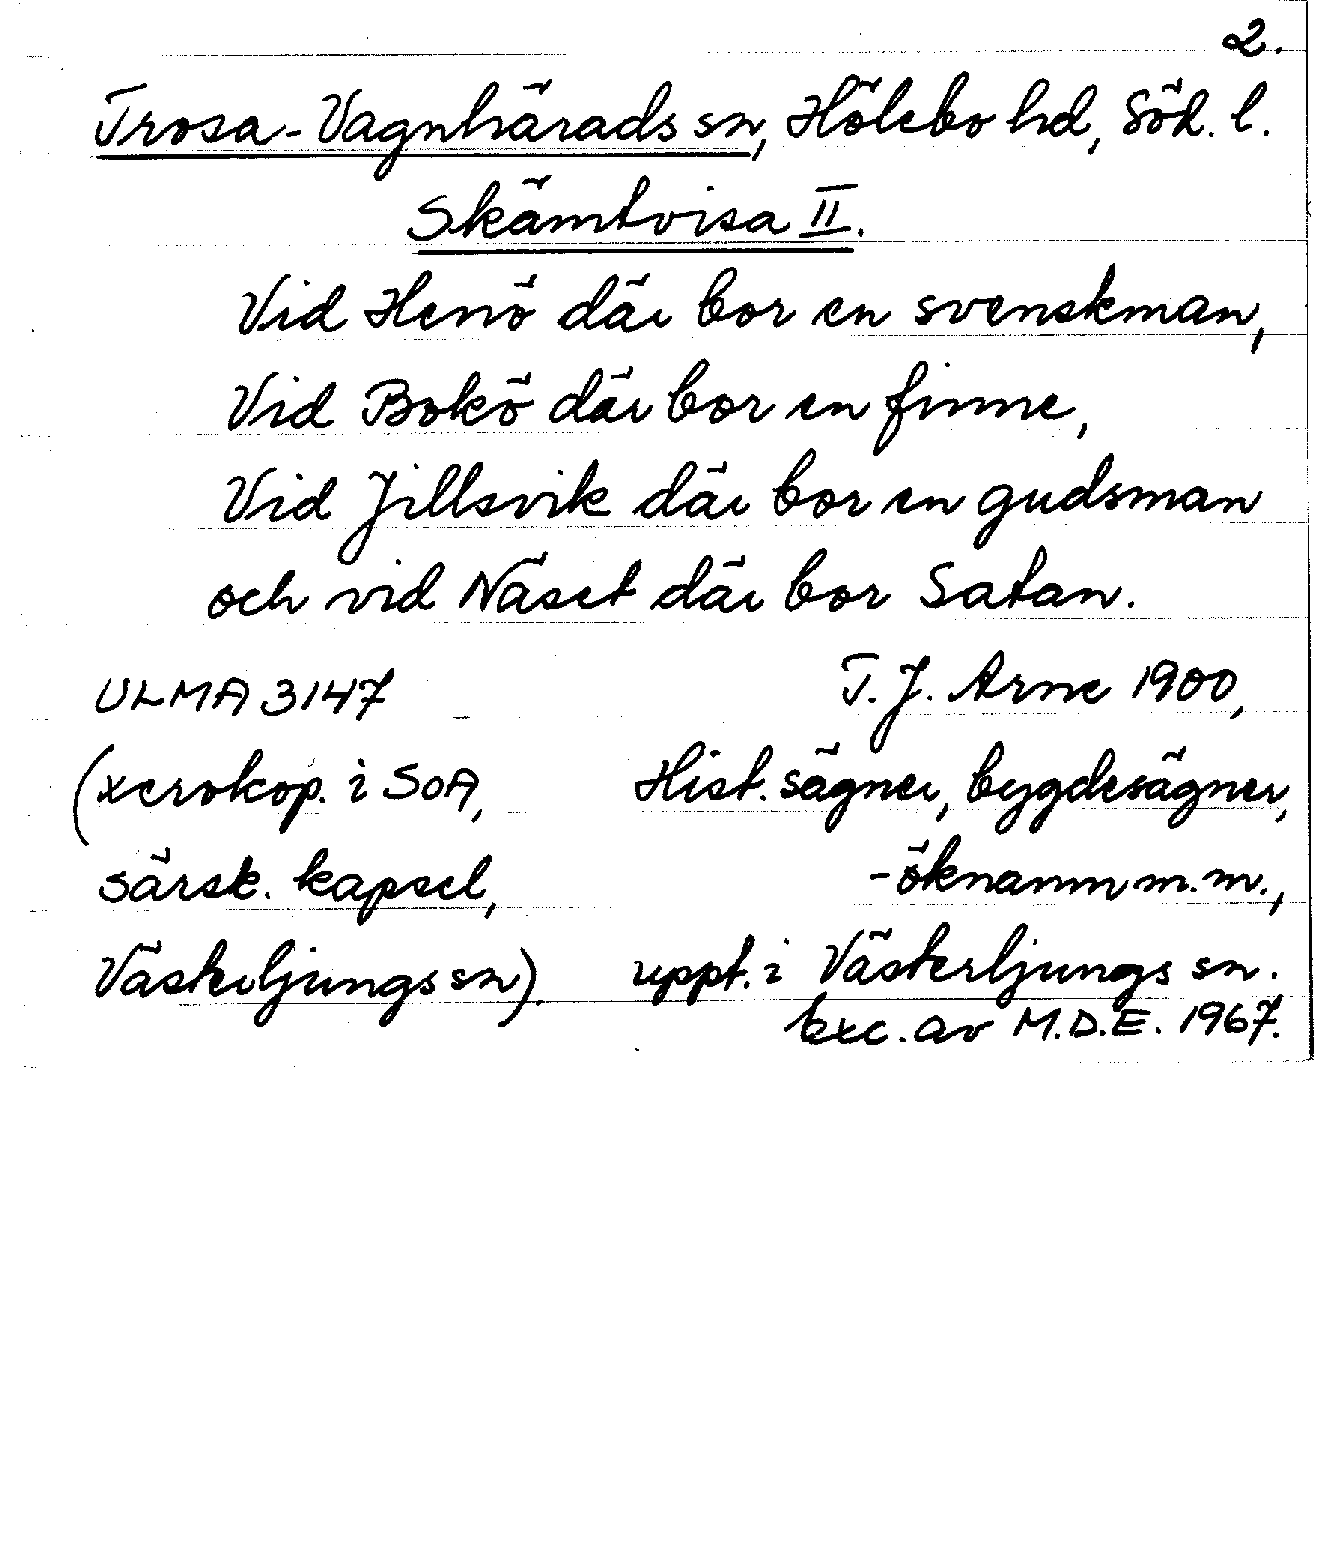 2.
Trosa-Vagnhärads sn, Hölebo hd, Söd. l.
Skämtvisa II.
Vid Henö där bor en svenskman,
Vid Bokö där bor en finne,
Vid Jillsvik där bor en gudsman
och vid Näset där bor Satan.
ULMA 3147
(xerokop. i SOA,
särsk. kapsel,
Västerljungs sn).
T. J. Arne 1900,
Hist. sägner, bygdesägner,
-öknamn m.m.,
uppt. i Västerljungs sn.
Exc. av M.D.E. 1967.